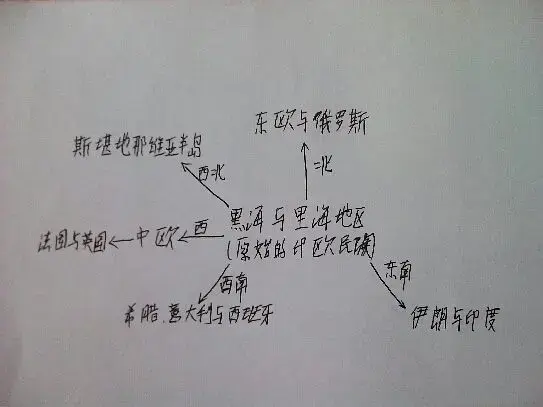 东欧与俄罗斯
斯堪地那维亚半岛
西北
北
黑海与里海地区
(原始的印欧民族)
法国与英国
中欧
西
西南
东南
希腊、意大利与西班牙
伊朗与印度